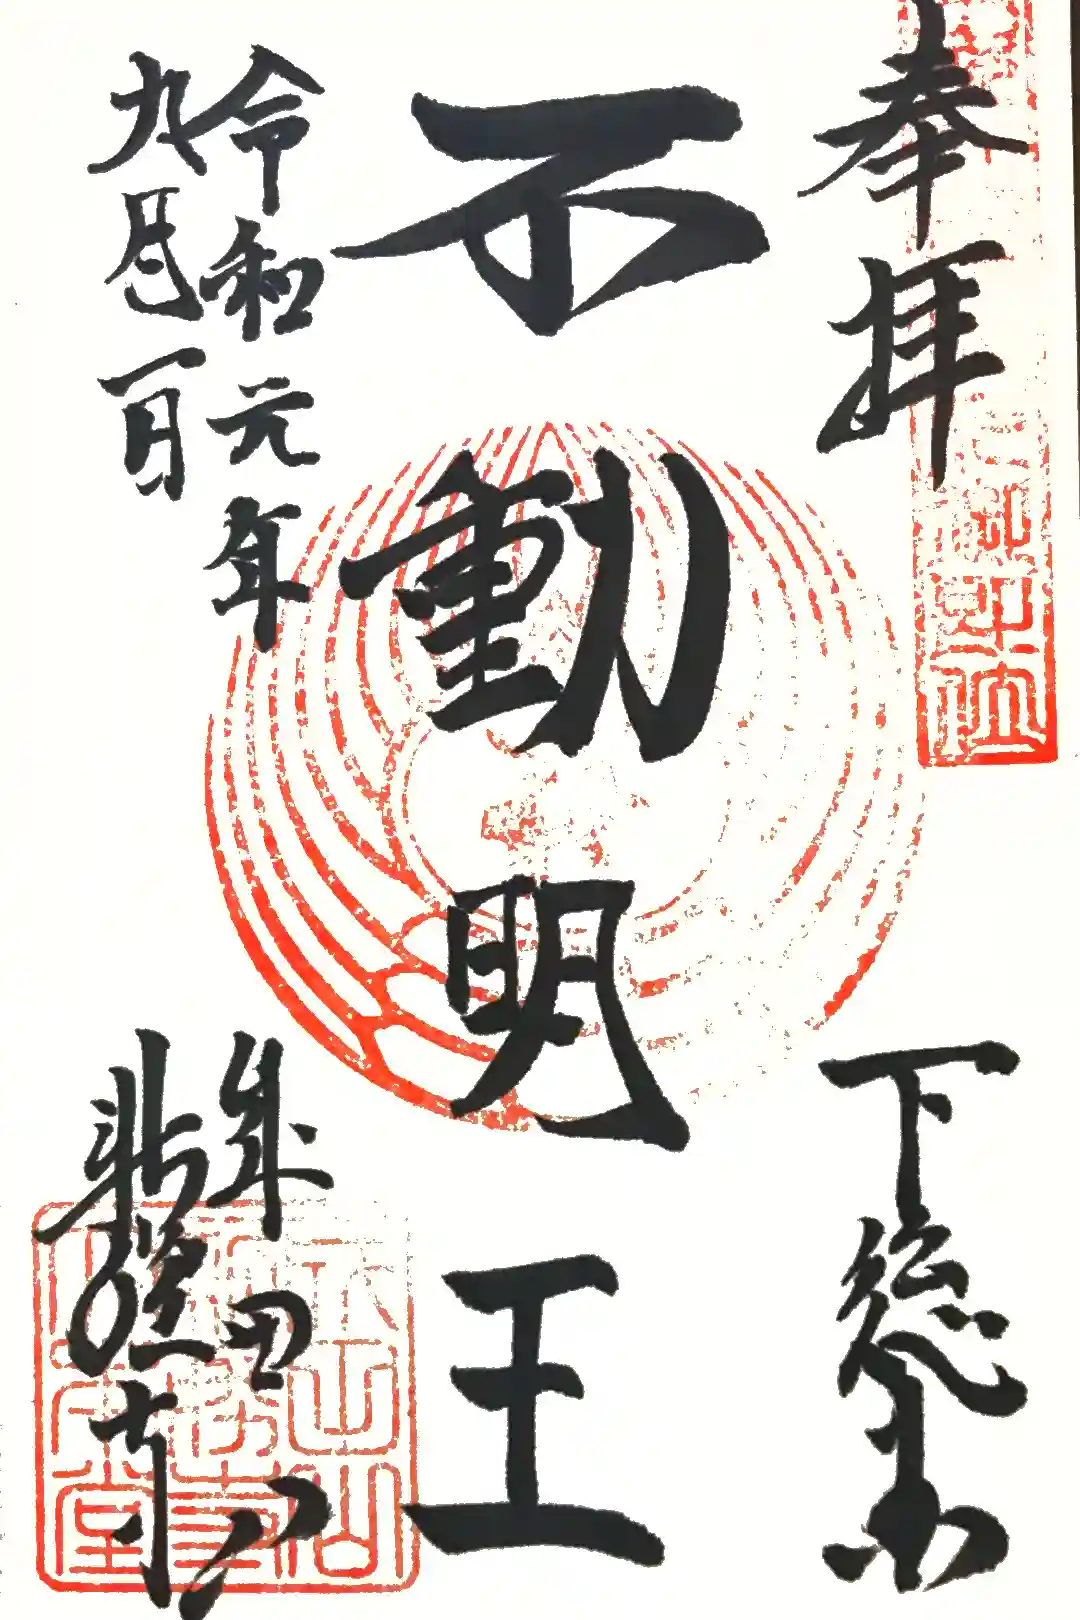 奉拝
下総
不動明王
令和元年
九月一日
成田山
新勝寺